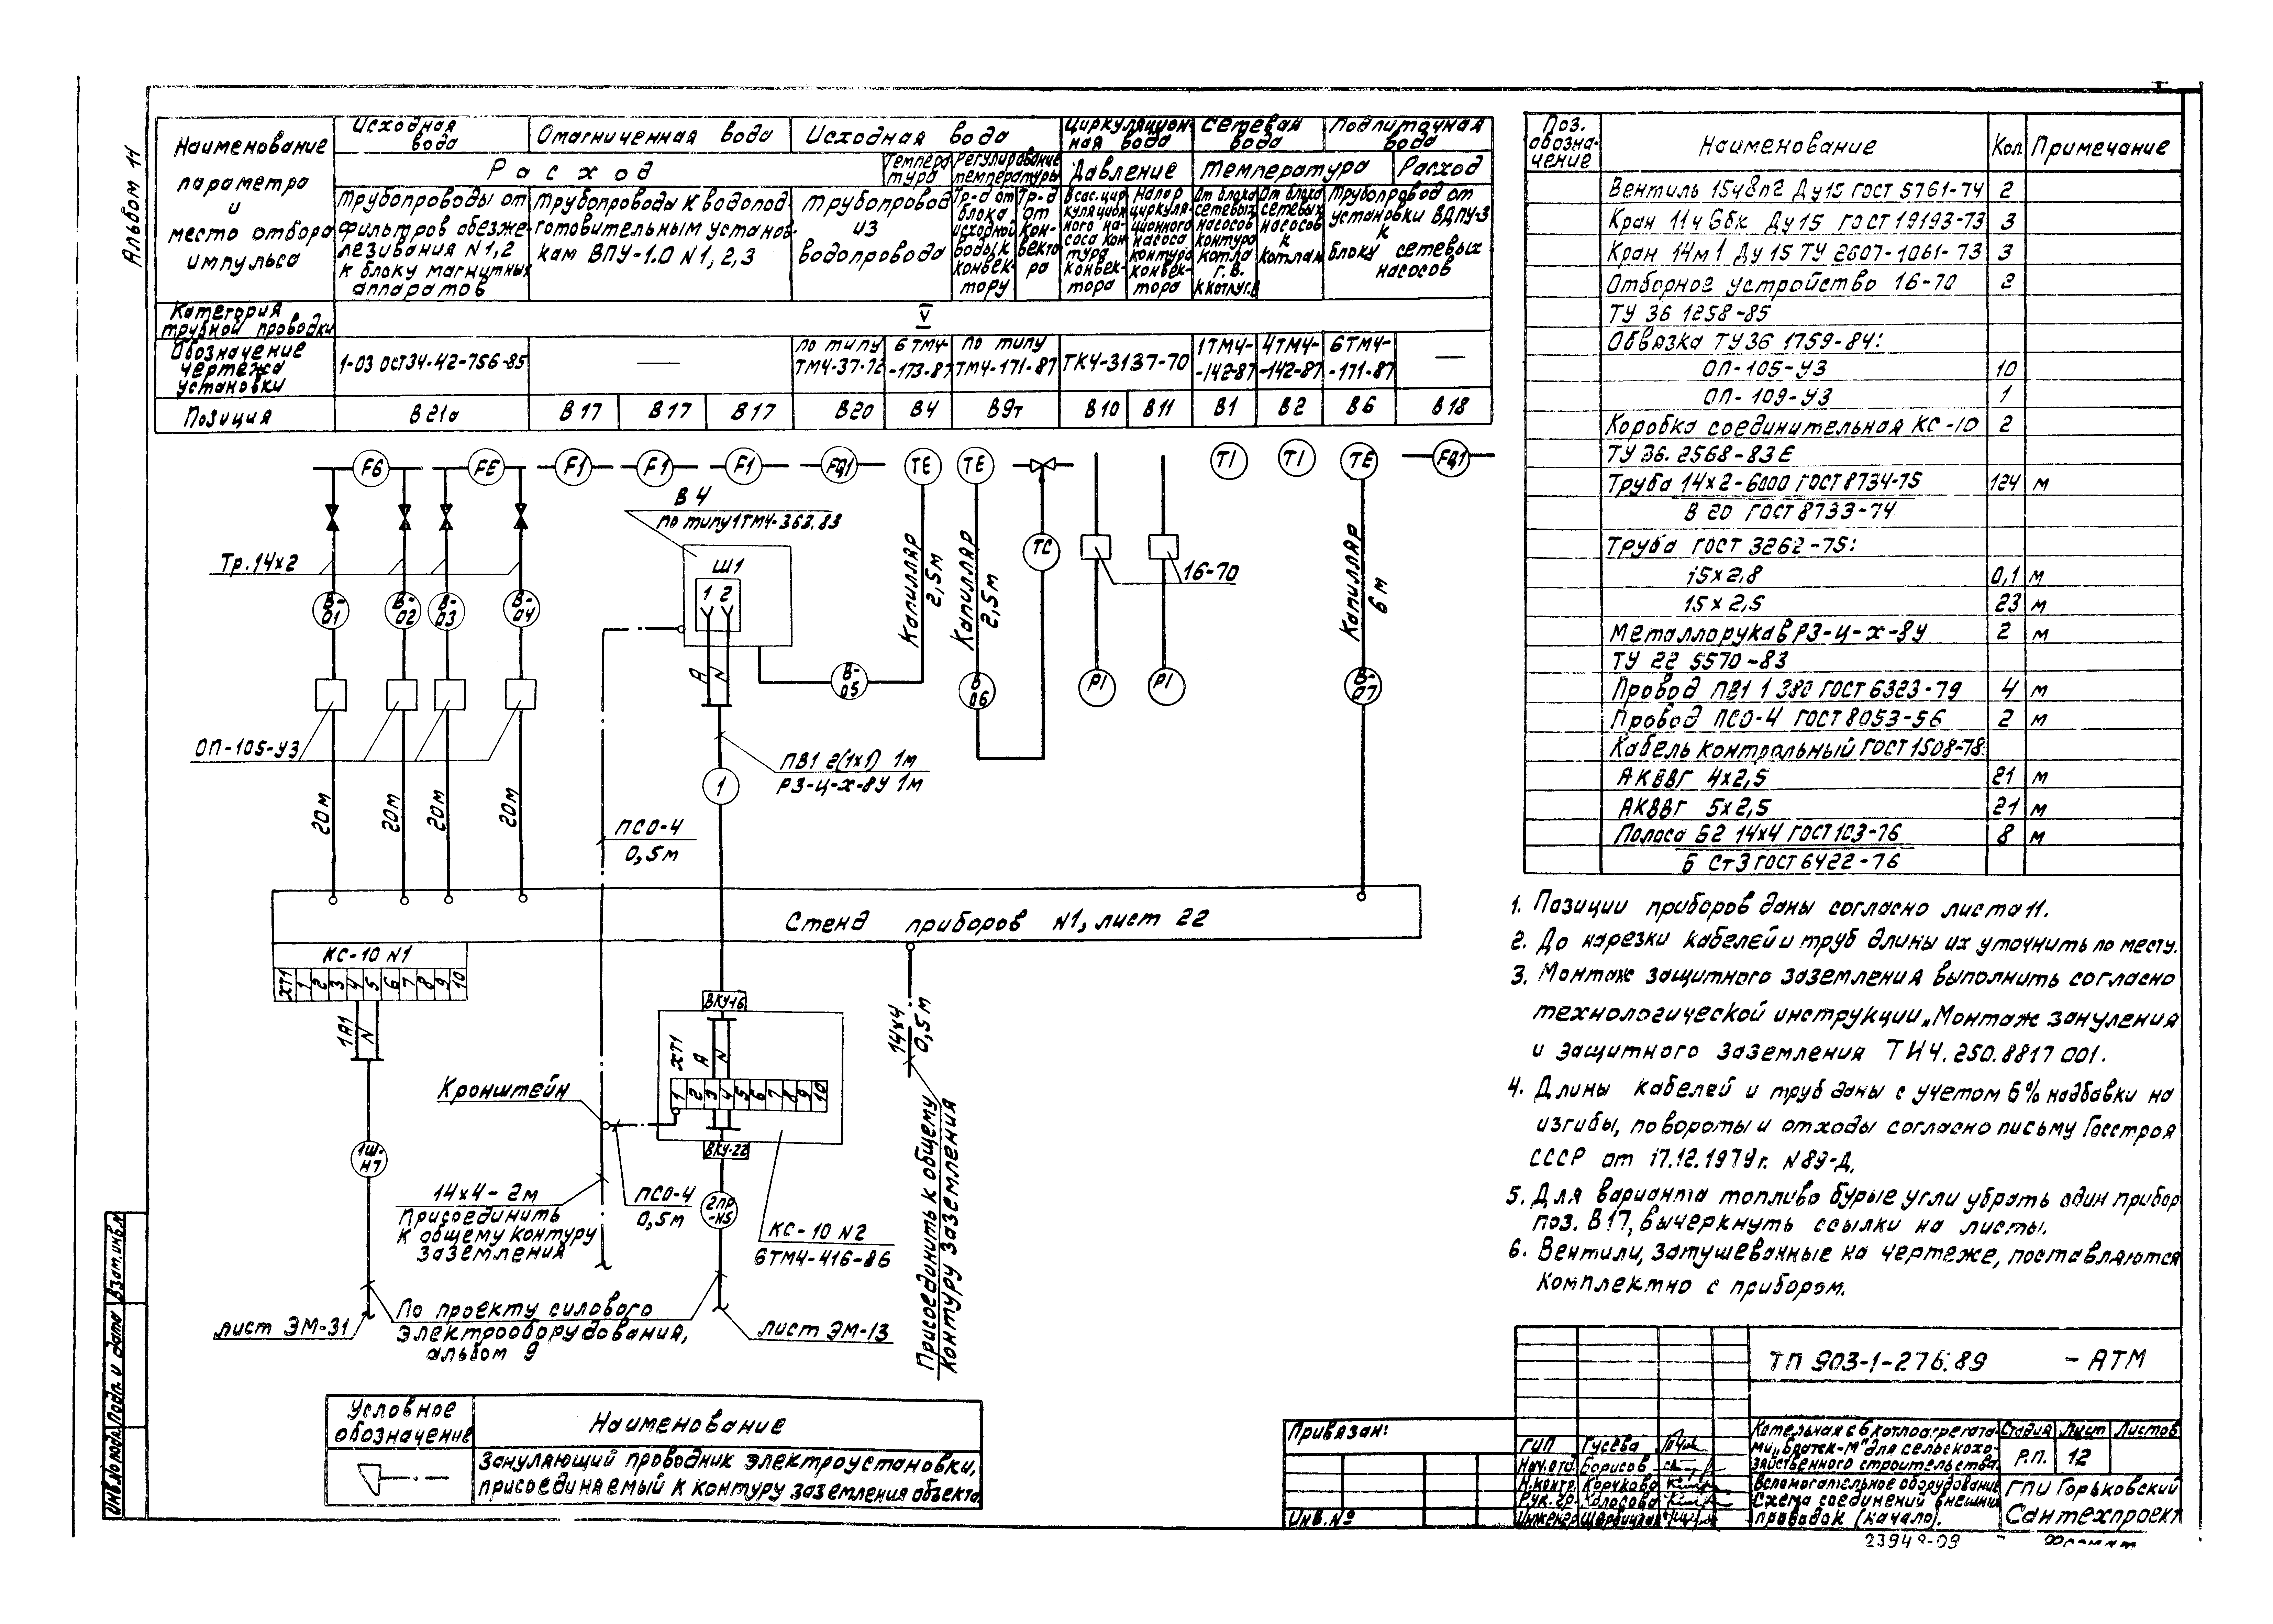 Альбом 11
Наименование
параметра
и
место отбора
импульса
Исходная
вода
Омагниченная вода
Исходная вода
Циркуляцион-
ная вода
Сетевая
вода
Подпиточная
вода
Расход
Темпера
тура
Регулирование
температуры
Давление
Температура
Расход
Трубопроводы от
фильтров обезже-
лезивания N1,2
к блоку магнитных
аппаратов
Трубопроводы к водопод-
готовительным установ-
кам ВПУ-1.0 N1, 2, 3
Трубопровод
из
водопровода
Тр-д от
блока
исходной
воды к
конвек-
тору
Тр-д
от
кон-
векто-
ра
Всас. цир
куляцион
ного на-
соса кон
тура
конвек-
тора
Напор
циркуля-
ционного
насоса
контура
конвек-
тора
От блока
сетевых
насосов
контура
котла
г.в.
к котлу г.в.
От блока
сетевых
насосов
к
котлам
Трубопровод от
установки ВДПУ-3
к
блоку сетевых
насосов
Категория
трубной проводки
V
Обозначение
чертежа
установки
1-03 ОСТ34-42-756-85
—
по типу
ТМ4-37-72
6ТМ4-
-173-87
по типу
ТМ4-171-87
ТК4-3137-70
1ТМ4-
-142-87
4ТМ4-
-142-87
6ТМ4-
-171-87
—
Позиция
В21а
В17
В17
В17
В20
В4
В9т
В10
В11
В1
В2
В6
В18
FE
F1
F1
F1
FQ1
TE
TE
TI
TI
TE
FQ1
В4
по типу 1ТМ4-363.83
Ш1
1 2
А
N
Тр.14х2
В-
01
В-
02
В-
03
В-
04
ОП-105-У3
20м
20м
20м
20м
Капилляр
2,5м
Капилляр
2,5м
TC
16-70
Капилляр
6м
В-
05
В
06
PI
PI
В-
07
ПВ1 2(1х1) 1м
РЗ-Ц-Х-8У 1м
1
ПСО-4
0,5м
Стенд приборов N1, лист 22
КС-10 N1
ХТ1
1 2 3 4 5 6 7 8 9 10
1А1
N
ВКУ-16
ХТ1
А
N
1 2 3 4 5 6 7 8 9 10
ВКУ-22
Кронштейн
14х4
0,5м
Присоединить к общему
контуру заземления
1Ш-
Н7
14х4-2м
Присоединить
к общему контуру
заземления
ПСО-4
0,5м
2ПР
-Н5
КС-10 N2
6ТМ4-416-86
лист ЭМ-31
По проекту силового
электрооборудования,
альбом 9
лист ЭМ-13
Условное
обозначение
Наименование
Зануляющий проводник электроустановки,
присоединяемый к контуру заземления объекта.
Поз.
обозна-
чение
Наименование
Кол.
Примечание
Вентиль 15ч8п2 Ду15 ГОСТ 5761-74 2
Кран 11ч6бк Ду15 ГОСТ 19193-73 3
Кран 14м1 Ду15 ТУ 2607-1061-73 3
Отборное устройство 16-70 2
ТУ 36 1258-85
Обвязка ТУ36 1759-84:
ОП-105-У3 10
ОП-109-У3 1
Коробка соединительная КС-10 2
ТУ 36. 2568-83Е
Труба 14х2-6000 ГОСТ 8734-75 124 м
В 20 ГОСТ 8733-74
Труба ГОСТ 3262-75:
15х2,8 0,1 м
15х2,5 23 м
Металлорукав РЗ-Ц-Х-8У 2 м
ТУ 22 5570-83
Провод ПВ1 1 380 ГОСТ 6323-79 4 м
Провод ПСО-4 ГОСТ 8053-56 2 м
Кабель контрольный ГОСТ 1508-78
АКВВГ 4х2,5 21 м
АКВВГ 5х2,5 21 м
Полоса Б2 14х4 ГОСТ 103-76 8 м
Б Ст3 ГОСТ 6422-76
1. Позиции приборов даны согласно листа 11.
2. До нарезки кабелей и труб длины их уточнить по месту.
3. Монтаж защитного заземления выполнить согласно
технологической инструкции „Монтаж зануления
и защитного заземления ТИ4.250.8817 001.
4. Длины кабелей и труб даны с учетом 6% надбавки на
изгибы, повороты и отходы согласно письму Госстроя
СССР от 17.12.1979г. N89-Д.
5. Для варианта топливо бурые угли убрать один прибор
поз. В17, вычеркнуть ссылки на листы.
6. Вентили, затушеванные на чертеже, поставляются
комплектно с прибором.
ТП 903-1-276.89 -АТМ
Привязан:
Инв.№
ГИП Гусева
Нач.отд. Борисов
Н.контр. Корчкова
Рук.гр. Колосова
Инженер
Котельная с 6 котлоагрегата-
ми „Братск-М" для сельскохо-
зяйственного строительства.
Вспомогательное оборудование
Схема соединений внешних
проводок (начало).
Стадия Лист Листов
Р.П. 12
ГПИ Горьковский
Сантехпроект
Инв.№ подл. Подп. и дата Взам.инв.№
23948-09
Формат